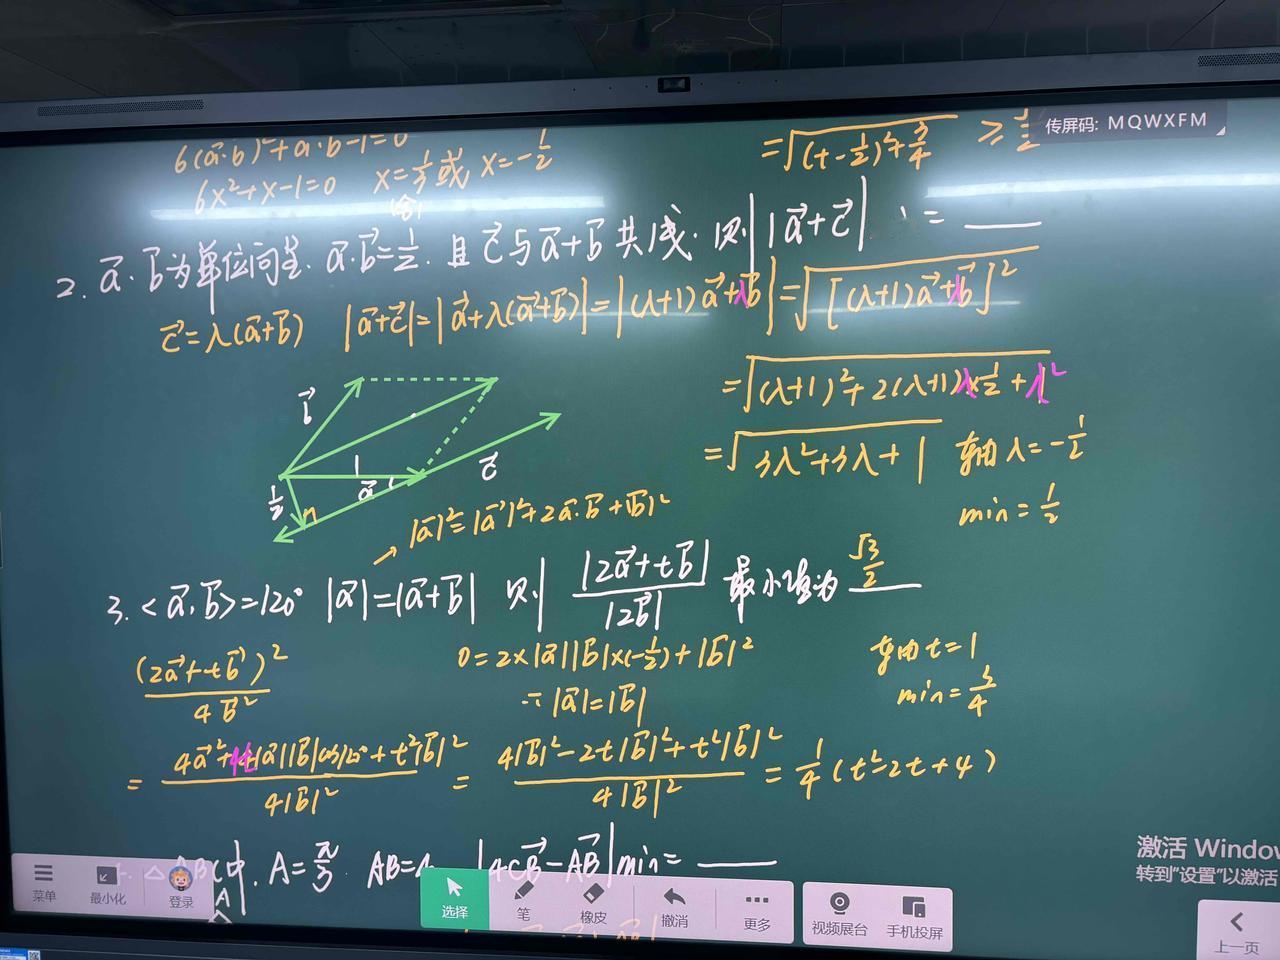 6(a⃗·b⃗)²+a⃗·b⃗-1=0
6x²+x-1=0 x=1/3或 x=-1/2
(舍)
=√((t-1/2)²+3/4) ≥
传屏码: MQWXFM
2. a⃗·b⃗为单位向量. a⃗·b⃗=1/2. 且c⃗与a⃗+b⃗共线. 则|a⃗+c⃗| =
c⃗=λ(a⃗+b⃗) |a⃗+c⃗|=|a⃗+λ(a⃗+b⃗)|=|(λ+1)a⃗+λb⃗|=√[(λ+1)a⃗+λb⃗]²
=√((λ+1)²+2(λ+1)λ×1/2+λ²)
=√(3λ²+3λ+1) 对称λ=-1/2
min=1/2
b⃗
1
a⃗
c⃗
1/2
|a⃗|²=|a⃗|²+2a⃗·b⃗+|b⃗|²
3. <a⃗·b⃗>=120° |a⃗|=|a⃗+b⃗| 则 |2a⃗+tb⃗|/|2b⃗| 最小值为 √3/2
(2a⃗+tb⃗)²/4b⃗²
0=2×|a⃗||b⃗|×(-1/2)+|b⃗|²
∴|a⃗|=|b⃗|
对称t=1
min=3/4
=(4a⃗²+4t|a⃗||b⃗|cos120°+t²|b⃗|²)/4|b⃗|² = (4|b⃗|²-2t|b⃗|²+t²|b⃗|²)/4|b⃗|² = 1/4(t²-2t+4)
△ABC中. A=π/3. AB=4 |4CB⃗-AB⃗|min=
A
激活 Window
转到"设置"以激活
菜单
最小化
登录
选择
笔
橡皮
撤消
更多
视频展台
手机投屏
上一页